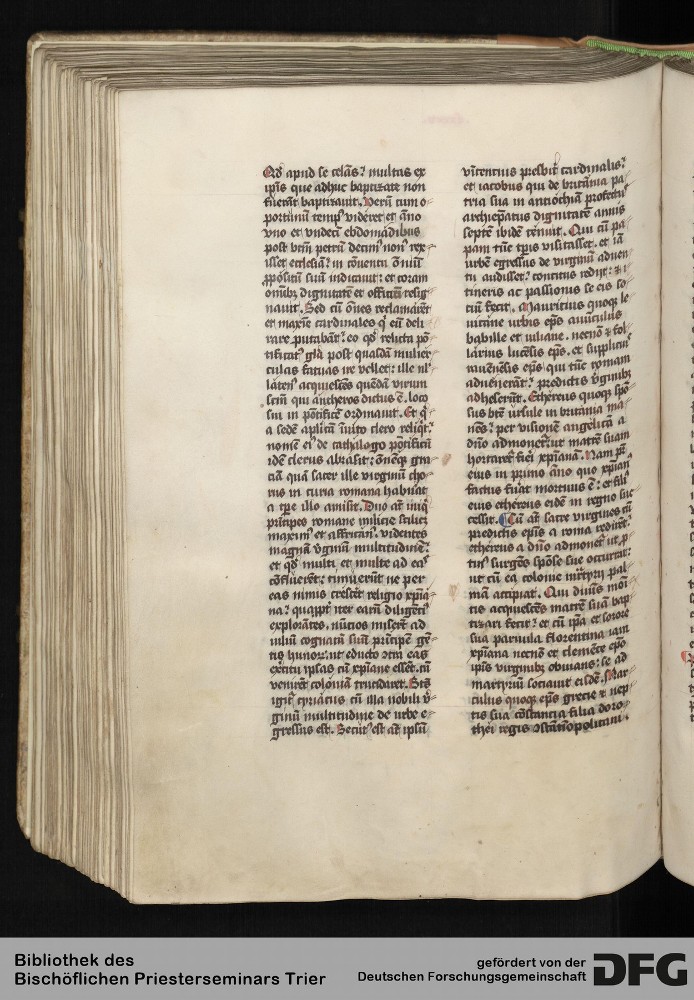 Qd apud se celās? multas ex
ip̄is que adhuc baptizate non
fuerāt baptizauit. Verū cum o⸗
portunū temp⁹ videret et āno
vno et vndeci ebdomadibus
post btm̄ petrū decim⁹ non⁹ rex⸗
isset ecclesiā? in cōuentu ōniū
ꝓpositū suū indicauit: et coram
omībꝫ dignitatē et officiū resig⸗
nauit. Sed cū ōnes reclamarēt
et maxīe cardinales q̇ eū deli
rare putabāt? eo qd̄ relicta pō⸗
tificat⁹ gl̄ia post quasdā mulier⸗
culas fatuas ire vellet: ille nl̄⸗
laten⁹ acquiescēs quēdā virum
scm̄ qui antheros dictus ē. loco
sui in pōtificē ordinauit. Et q̇
a sedē aplicā īuito clero reliq̇t.
nomē ei⁹ de cathalogo pōtificū
idē clerus abrasit: ōnēqꝫ gra
ciā quā sacer ille virginū cho⸗
rus in curia romana habuit
a tpe illo amisit. Duo āt iniq̇
pricipes romane milicie scilicet
maxim⁹ et affrican⁹. videntes
magnā v̇ginū multitudinē.
et qd̄ multi et multe ad eas
cōfluerēt: timuerūt ne per
eas nimis cresceret religio xpiā⸗
na? quappt iter earū diligēt⁹
explorātes. nūcios miserūt ad
iuliū cognatū suū pricipē gē⸗
tis hunor. ut educto ꝯtra eas
exercitu ipsas cū xpiane essēt. cū
venirēt coloniā trucidaret. Btūs
igit̄ cyriacus cū illa nobili v̇⸗
ginū multitudine de urbe e⸗
gressus est. Secut⁹ est āt ipsū
vīcencius presbit̄ cardinalis?
et iacobus qui de britānia pa⸗
tria sua in antiochiā profectus
archiep̄atus dignitatē annis
septē ibidē tenuit. Qui cū pa⸗
pam tūc tp̄is visitasset. et iā
urbē egressus de virginū aduen⸗
tu audisset? concitus redijt: et i⸗
tineris ac passionis se eis so⸗
ciū fecit. Mauricius quoqꝫ le⸗
uitane urbis ep̄s auūculus
babille et iuliane. necnō et fol⸗
larius lucēsis ep̄s. et supplicius
rauenēsis ep̄s qui tūc romam
aduenerāt? predictis v̇ginibꝫ
adheserūt. Ethereus quoqꝫ spō⸗
sus btē ursule in britānia ma⸗
nēs? per visionē angelicā a
dn̄o admonetur ut matrē suam
hortaret̄ fieri xpianā. Nam pr̄
eius in primo āno quo xpian⁹
factus fuāt mortuus ē: et fili⁹
eius ethereus eidē in regno suc⸗
cessit. Cū āt sacre virgines cū
predictis ep̄is a roma redirēt?
ethereus a dn̄o admonet̄ ut p̄⸗
tin⁹ surgēs spōse sue occurrat:
ut cū ea colonie mrtyrij pal⸗
mā accipiat. Qui diuis moni⸗
tis acquiescēs matrē suā bap⸗
tizari fecit? et cū ip̄a et sorore
sua paruula florentina iam
xpiana necnō et clemēte ep̄o
ipīs virginibꝫ obuians: se ad
martyriū sociauit eisdē. Mar⸗
culus quoqꝫ ep̄s grecie et nep⸗
tis sua cōstancia filia doro⸗
thei regis ꝯstātinopolitani.
Bibliothek des
Bischöflichen Priesterseminars Trier
gefördert von der
Deutschen Forschungsgemeinschaft
DFG